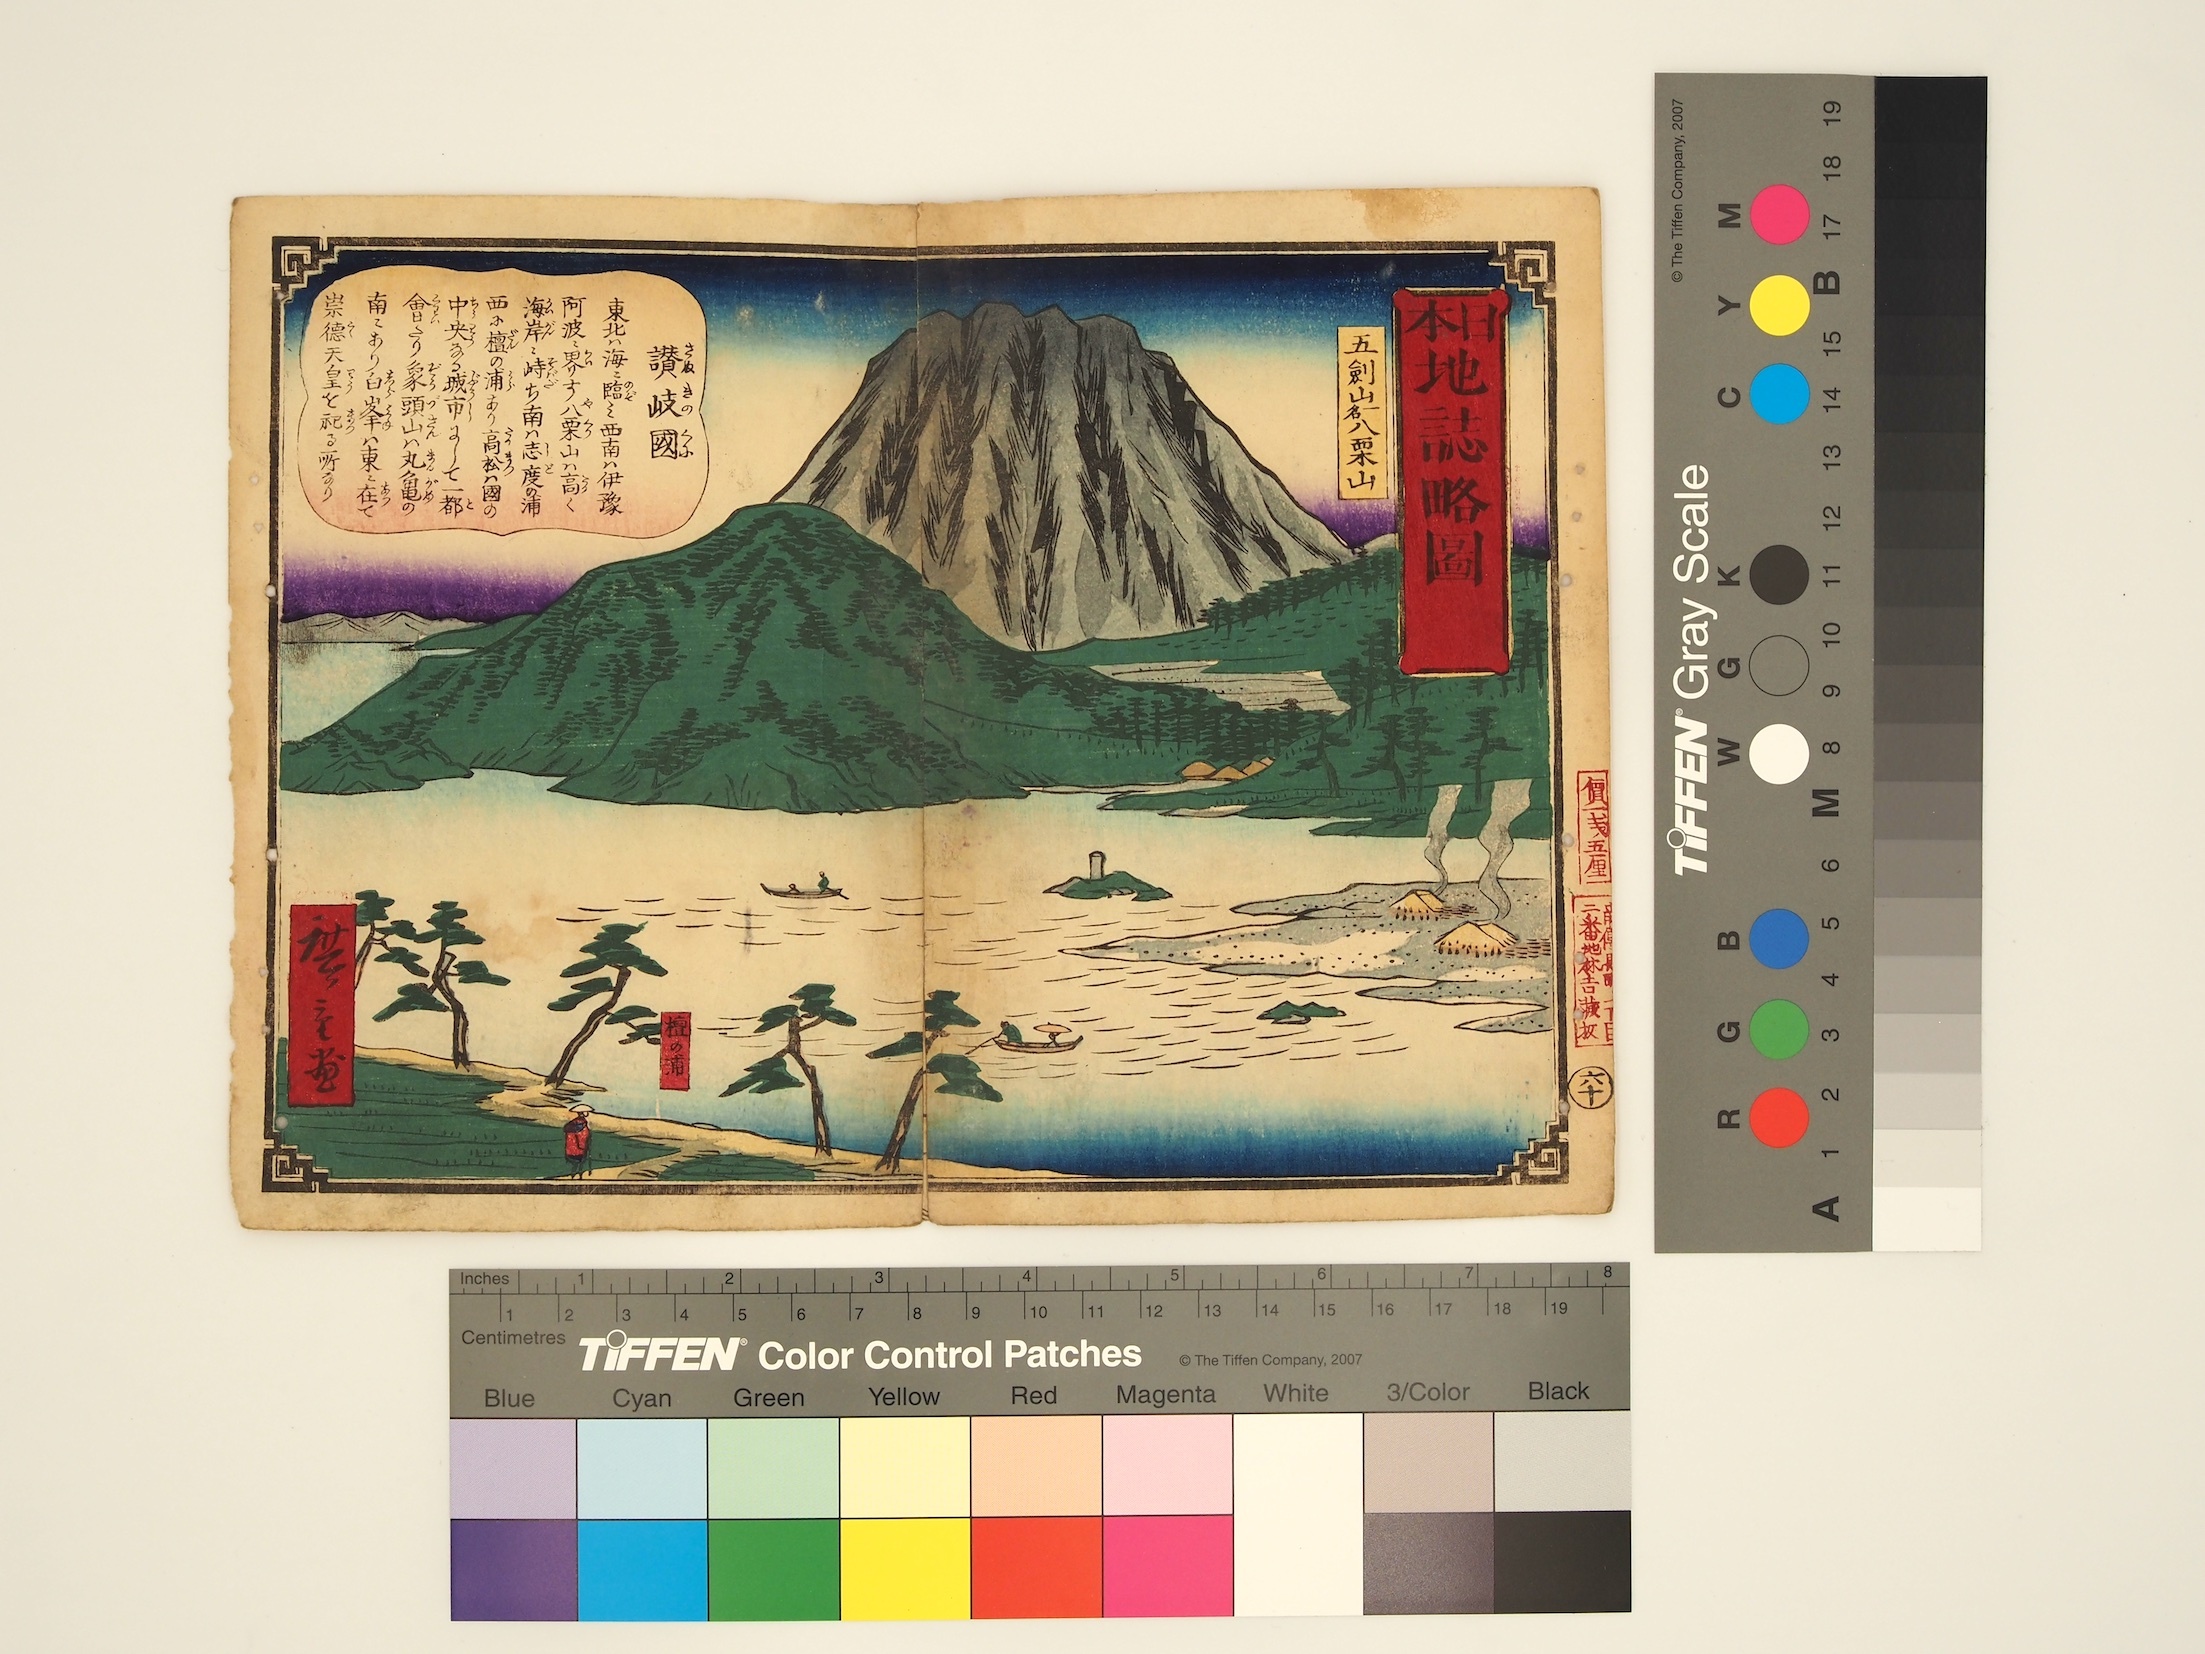 日本地誌略圖
五劔山一名八栗山
讃岐國
さぬきのくに
東北ハ海ニ臨ミ西南ハ伊豫
阿波ニ界す八栗山ハ高く
海岸ニ峙ち南ハ志度の浦
西に檀の浦あり高松ハ國の
中央なる城市にして一都
會なり象頭山ハ丸亀の
南にあり白峯ハ東ニ在て
崇徳天皇を祀る所なり
檀の浦
廣重画
價弐戔五厘
二番地林吉蔵板
六十
© The Tiffen Company, 2007
TIFFEN® Gray Scale
R G B W G K C Y M
A 1 2 3 4 5 6 M 8 9 10 11 12 13 14 15 B 17 18 19
Inches 1 2 3 4 5 6 7 8
1 2 3 4 5 6 7 8 9 10 11 12 13 14 15 16 17 18 19
Centimetres
TIFFEN® Color Control Patches © The Tiffen Company, 2007
Blue Cyan Green Yellow Red Magenta White 3/Color Black